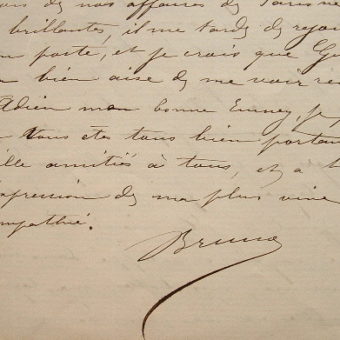 de nos affaires de Paris ne
brillantes, il me tarde de
porte, et je crois que
bien aise de me voir
Adieu ma bonne Emmey, je
vous êtes tous bien portan
ille amitiés à tous, et à
xpression de ma plus vive
mpathie.
Bruno